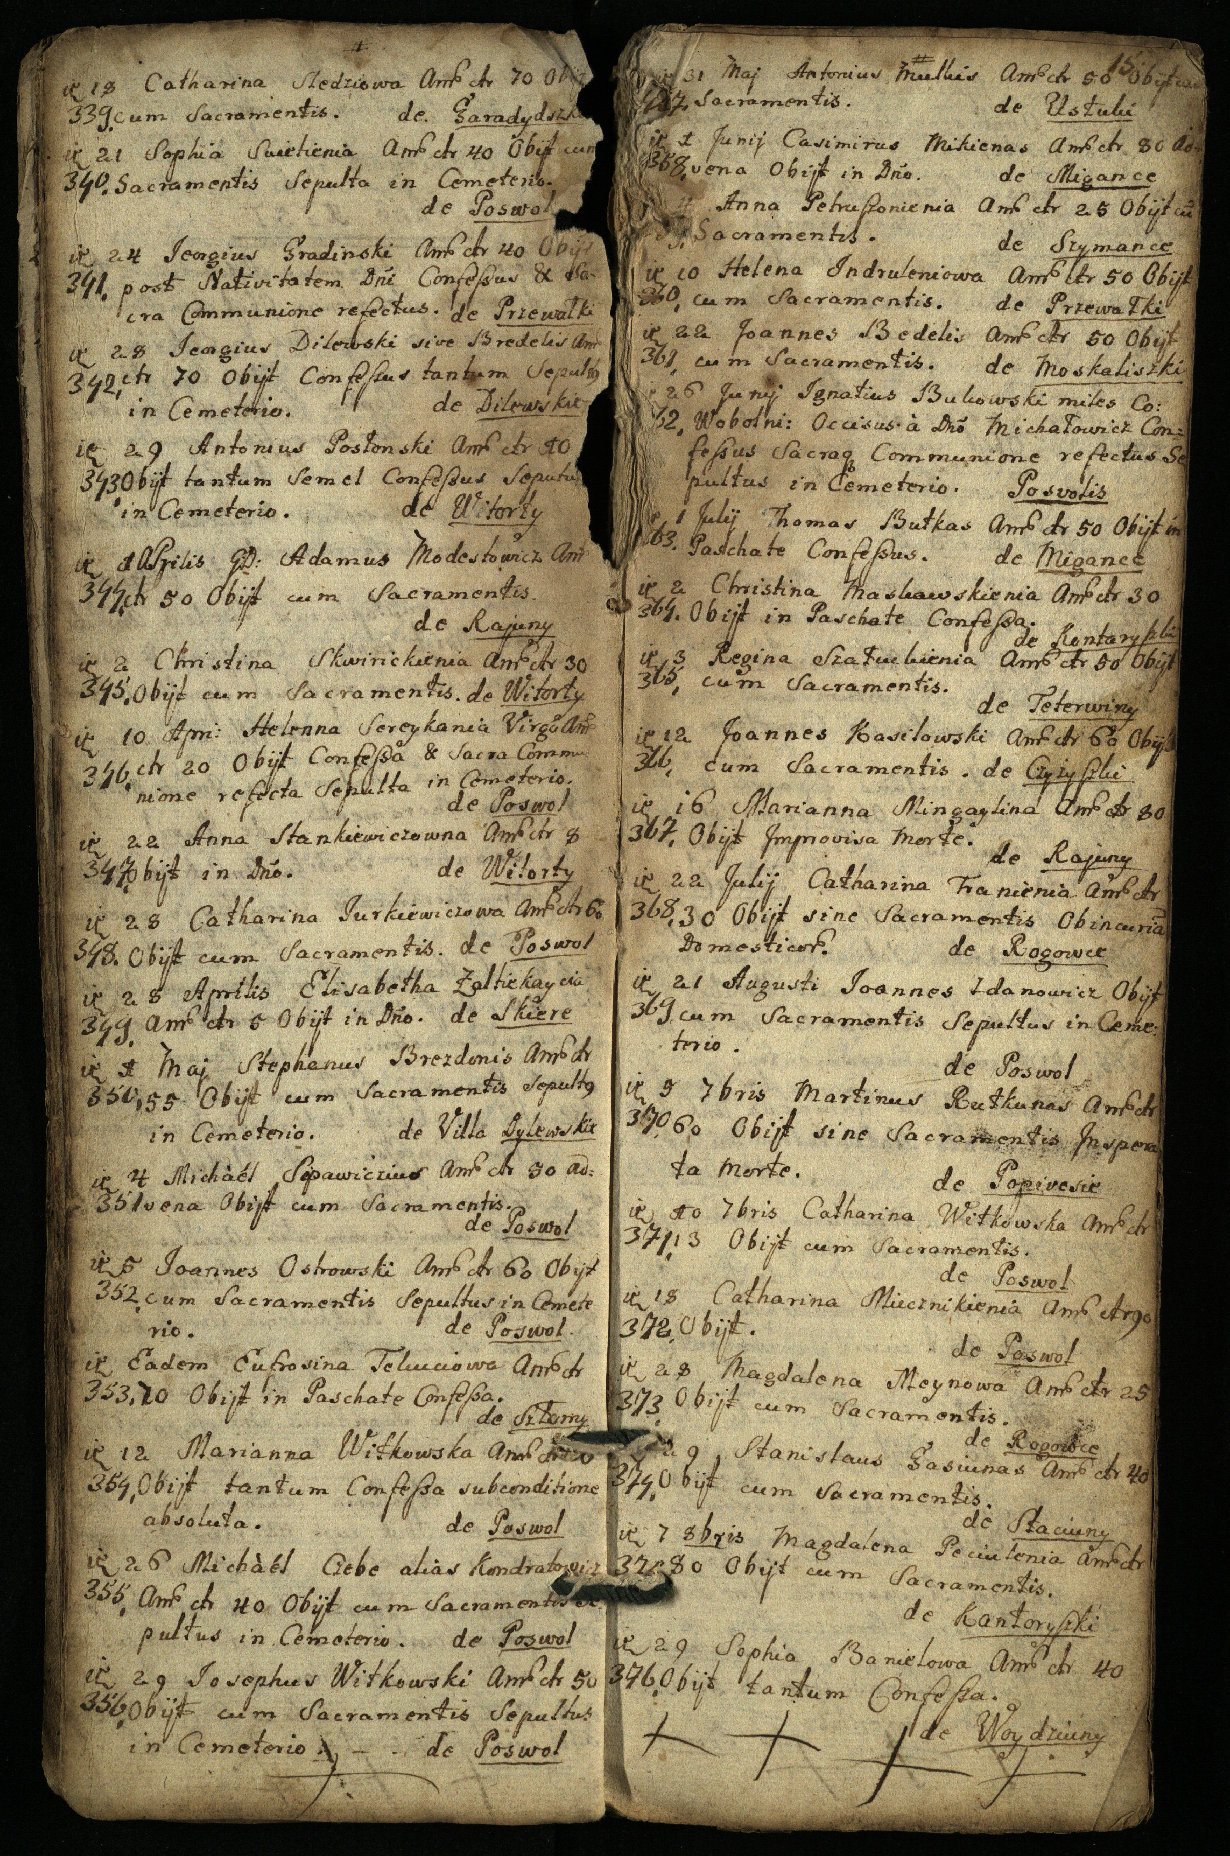 18 Catharina Sledziowa Ann. ctr 70 Obijt
339. cum Sacramentis. de Garadydszki
21 Sophia Swietienia Ann. ctr 40 Obijt cum
340. Sacramentis Sepulta in Cemeterio.
de Poswol
24 Jeorgius Gradinski Ann. ctr 40 Obijt
341. post Nativitatem Dni Confessus & Sa-
cra Communione refectus. de Przewalki
28 Jeorgius Dilewski sive Bredelis Ann.
342. ctr 70 Obijt Confessus tantum Sepultus
in Cemeterio. de Dilewskie
29 Antonius Poslonski Ann. ctr 10
343 Obijt tantum Semel Confessus Sepultus
in Cemeterio. de Witorty
1 Aprilis GD: Adamus Modestowicz Ann.
344. ctr 50 Obijt cum Sacramentis.
de Rajuny
2 Christina Skwirickienia Ann. ctr 30
345. Obijt cum Sacramentis. de Witorty
10 Apri: Helenna Sereykania Virgo Ann.
346. ctr 20 Obijt Confessa & Sacra Commu
nione refecta Sepulta in Cemeterio.
de Poswol
22 Anna Stankiewiczowna Ann. ctr 8
347. Obijt in Dno. de Witorty
28 Catharina Jurkiewiczowa Ann. ctr 60
348. Obijt cum Sacramentis. de Poswol
28 Aprilis Elisabetha
349. Ann. ctr 5 Obijt in Dno. de Skiere
1 Maj Stephanus Brezdonis Ann. ctr
350. 55 Obijt cum Sacramentis Sepultus
in Cemeterio. de Villa Dylewskie
4 Michaël Sipawiczius Ann. ctr 50 ad:
351 vena Obijt cum Sacramentis.
de Poswol
5 Joannes Ostrowski Ann. ctr 60 Obijt
352. cum Sacramentis Sepultus in Cemete
rio. de Poswol
Eadem Eufrosina Ann. ctr
353. 70 Obijt in Paschate Confessa.
de Szlamy
12 Marianna Witkowska Ann. ctr
354. Obijt tantum Confessa subconditione
absoluta. de Poswol
26 Michaël Ciebe alias Kondratowicz
355. Ann. ctr 40 Obijt cum Sacramentis Se
pultus in Cemeterio. de Poswol
29 Josephus Witkowski Ann. ctr 50
356. Obijt cum Sacramentis Sepultus
in Cemeterio. de Poswol
15
31 Maj Antonius Mulkis Ann. ctr 50 Obijt cum
Sacramentis. de Ustuki
1 Junij Casimirus Mikienas Ann. ctr 80 Ad-
358. vena Obijt in Dno. de Migance
Anna Petrussonienia Ann. ctr 25 Obijt cu
Sacramentis. de Szymance
10 Helena Indruleniowa Ann. ctr 50 Obijt
360. cum Sacramentis. de Przewałki
22 Joannes Bedelis Ann. ctr 50 Obijt
361. cum Sacramentis. de Moskaliszki
26 Junij Ignatius Bukowski miles Co:
62. Wobolni: Occisus à Dno Michałowicz Con=
fessus Sacraq Communione refectus Se
pultus in Cemeterio. Posvolis
1 Julij Thomas Butkas Ann. ctr 50 Obijt in
63. Paschate Confessus. de Migance
2 Christina Maslawskienia Ann. ctr 30
364. Obijt in Paschate Confessa.
de Kontaryszki
3 Regina Szatukienia Ann. ctr 50 Obijt
365. cum Sacramentis.
de Teterwiny
12 Joannes Kasilowski Ann. ctr 60 Obijt
366. cum Sacramentis. de Czyzyszki
16 Marianna Mingaylina Ann. ctr 80
367. Obijt Improvisa Morte.
de Rajuny
22 Julij Catharina Franienia Ann. ctr
368. 30 Obijt sine Sacramentis Obincuria
Domesticor. de Rogowce
21 Augusti Joannes Zdanowicz Obijt
369 cum Sacramentis Sepultus in Ceme:
terio.
de Poswol
9 7bris Martinus Rutkunas Ann. ctr
370. 60 Obijt sine Sacramentis Inspera
ta Morte.
de Popiwesie
10 7bris Catharina Witkowska Ann. ctr
371. 13 Obijt cum Sacramentis.
de Poswol
18 Catharina Miecznikienia Ann. ctr 90
372. Obijt.
de Poswol
28 Magdalena Meynowa Ann. ctr 25
373. Obijt cum Sacramentis.
de Rogowce
29 Stanislaus Gasiunas Ann. ctr 40
374. Obijt cum Sacramentis.
de Staciuny
7 8bris Magdalena Peciulenia Ann. ctr
80 Obijt cum Sacramentis.
de Kantoryszki
29 Sophia Banielowa Ann. ctr 40
376. Obijt tantum Confessa.
de Woydziuny